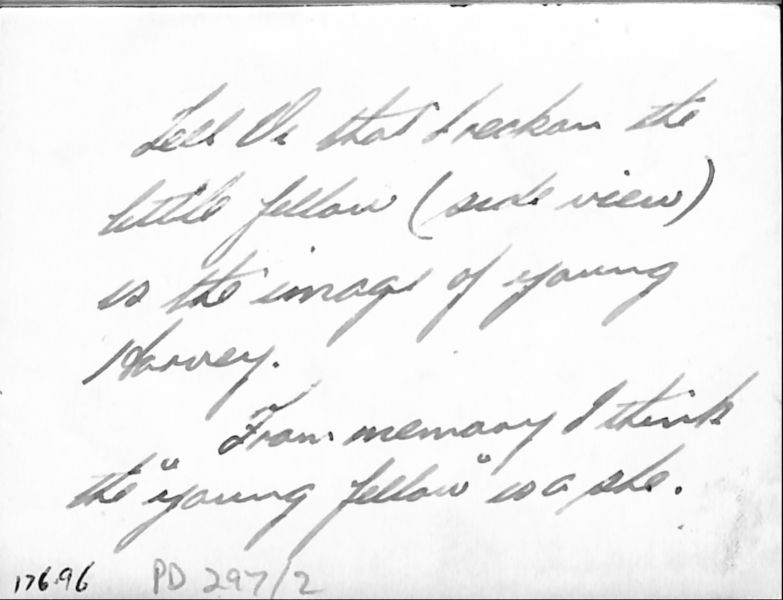 Tell Vi that I reckon the
little fellow (side view)
is the image of young
Harvey.
From memory I think
the "young fellow" is a she.
17696 PD 297/2